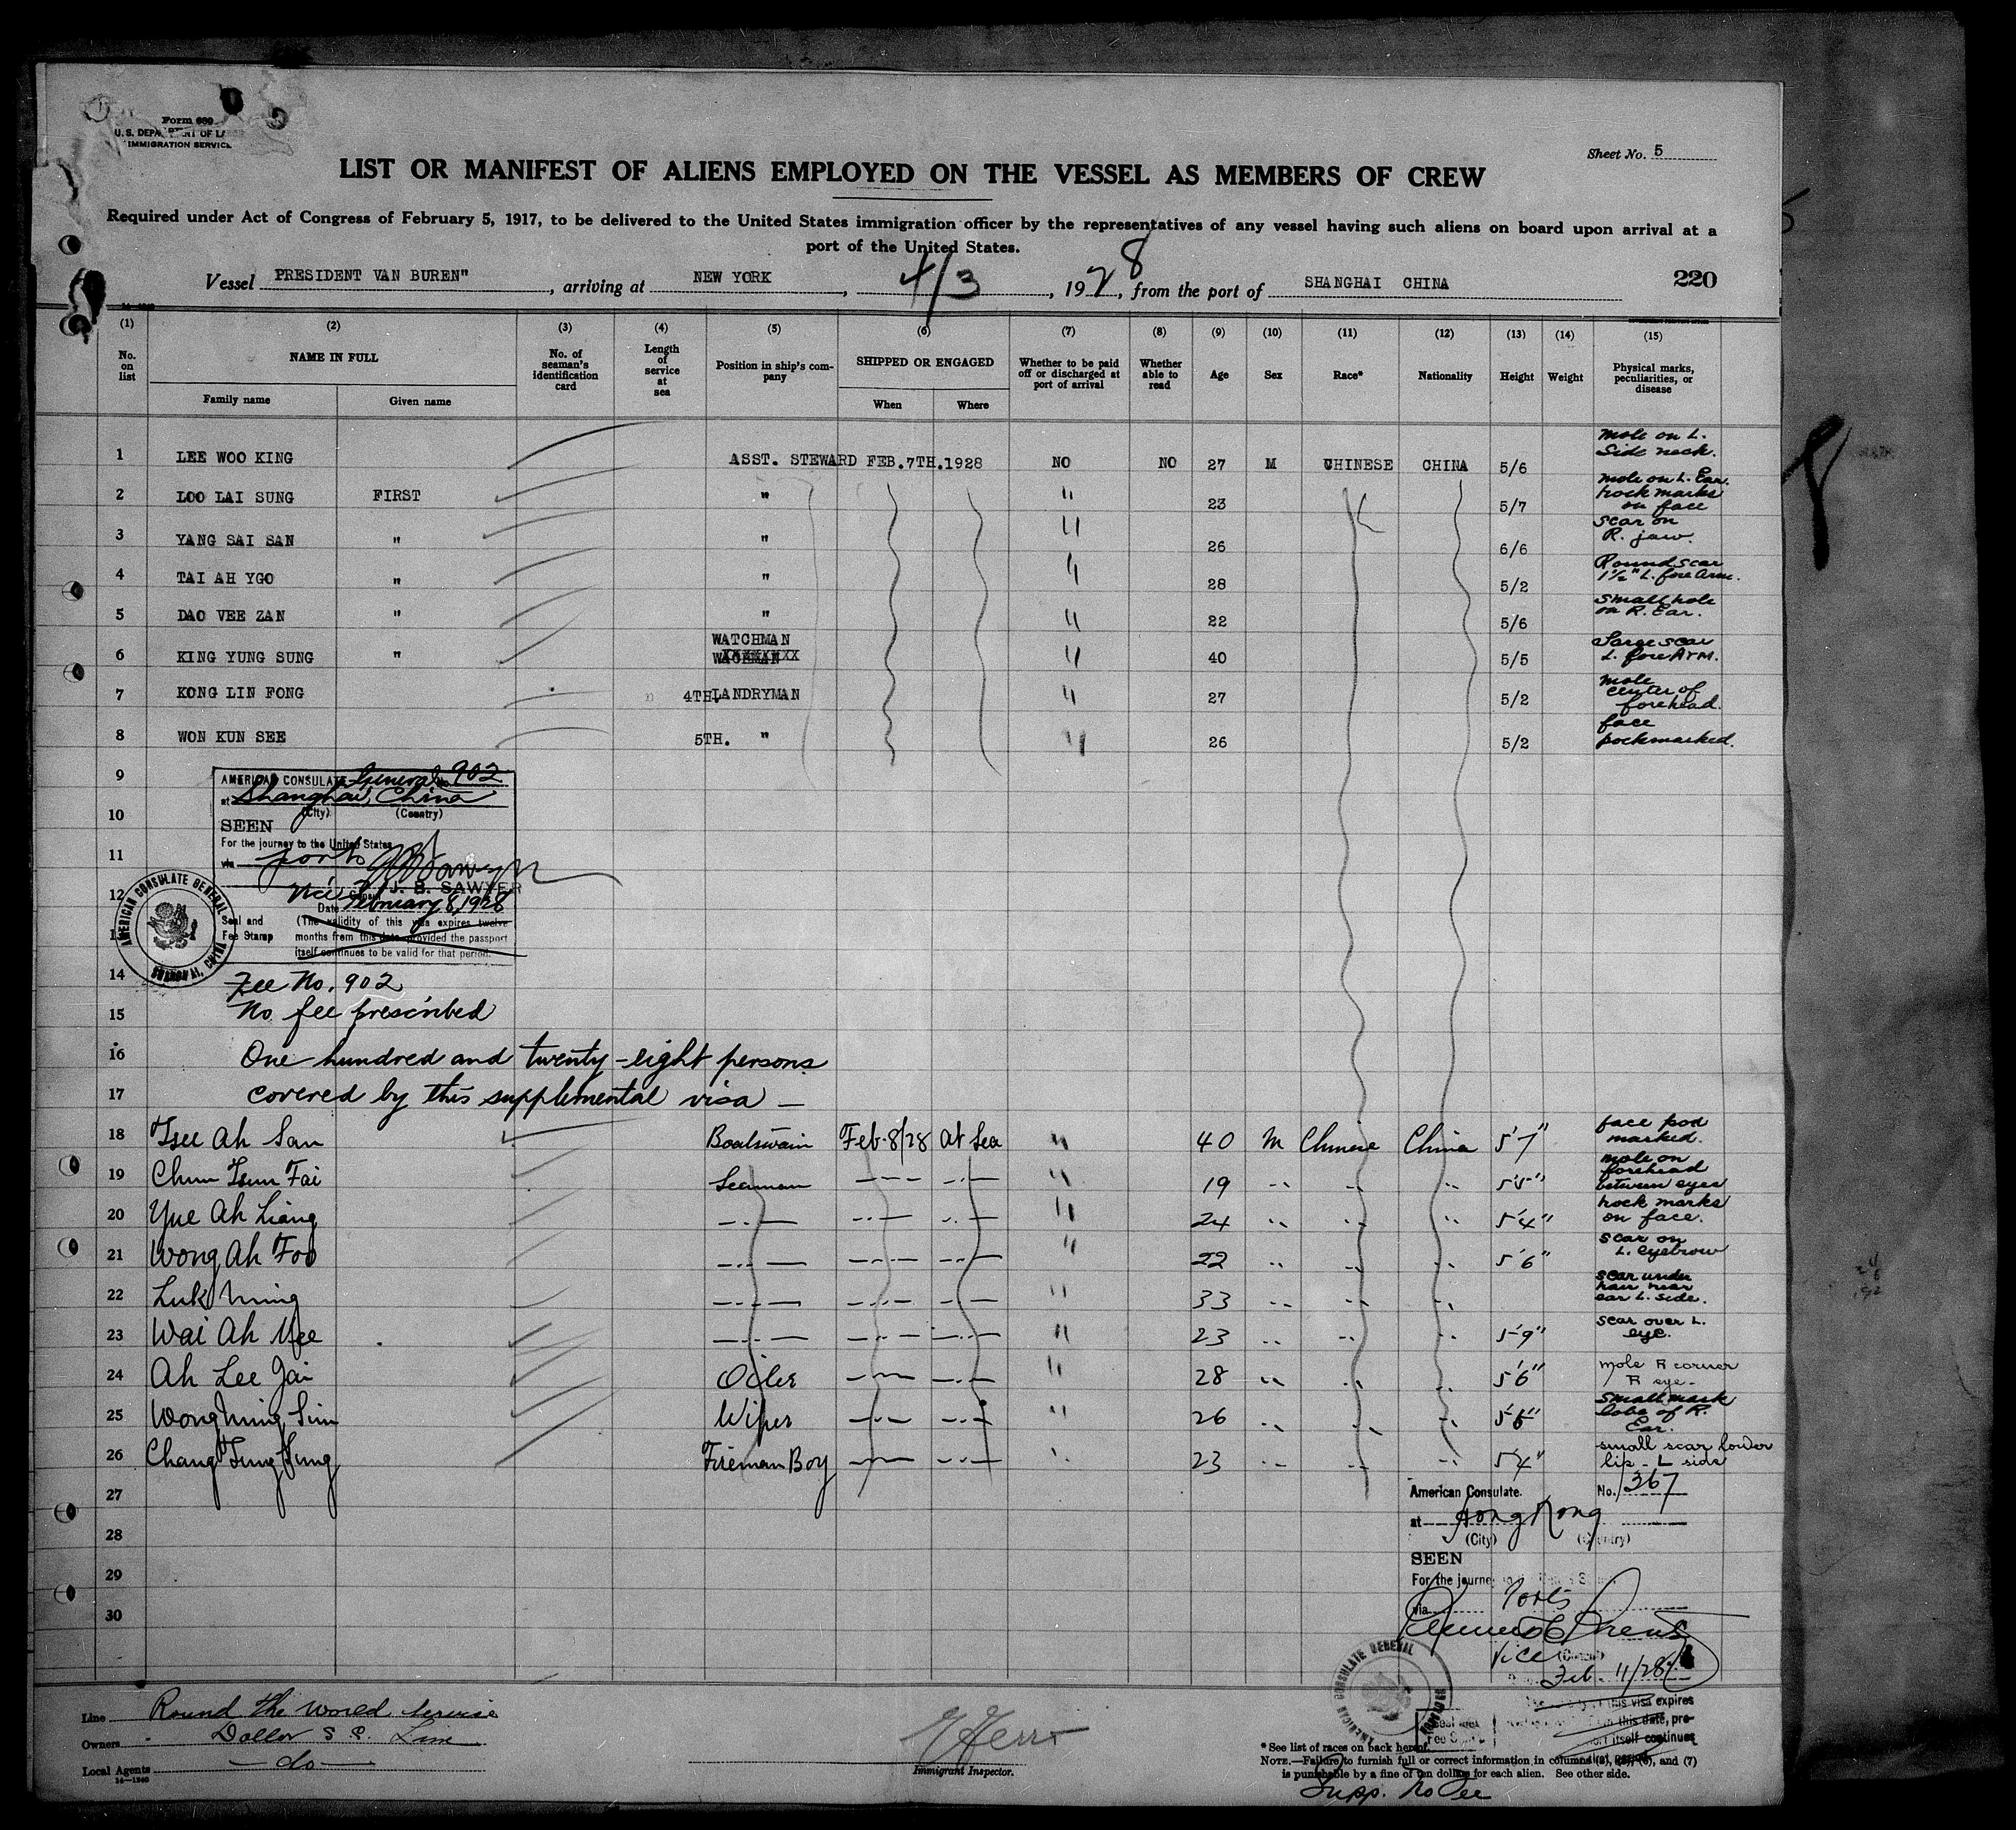 Form 680
U. S. DEPARTMENT OF LABOR
IMMIGRATION SERVICE
Sheet No. 5
LIST OR MANIFEST OF ALIENS EMPLOYED ON THE VESSEL AS MEMBERS OF CREW
Required under Act of Congress of February 5, 1917, to be delivered to the United States immigration officer by the representatives of any vessel having such aliens on board upon arrival at a
port of the United States.
Vessel PRESIDENT VAN BUREN", arriving at NEW YORK, 4/3, 1928, from the port of SHANGHAI CHINA 220
(1) (2) (3) (4) (5) (6) (7) (8) (9) (10) (11) (12) (13) (14) (15)
No. on list NAME IN FULL Family name Given name No. of seaman's identification card Length of service at sea Position in ship's company SHIPPED OR ENGAGED When Where Whether to be paid off or discharged at port of arrival Whether able to read Age Sex Race* Nationality Height Weight Physical marks, peculiarities, or disease
1 LEE WOO KING ASST. STEWARD FEB.7TH.1928 NO NO 27 M CHINESE CHINA 5/6 mole on L. Side neck.
2 LOO LAI SUNG FIRST " " 23 5/7 mole on L. Ear. pock marks on face
3 YANG SAI SAN " " " 26 6/6 scar on R. jaw.
4 TAI AH YGO " " " 28 5/2 Round scar 1½" L. fore Arm.
5 DAO VEE ZAN " " " 22 5/6 small hole on R. Ear.
6 KING YUNG SUNG " WATCHMAN " 40 5/5 Large scar L. fore Arm.
7 KONG LIN FONG 4TH. LANDRYMAN " 27 5/2 mole center of forehead.
8 WON KUN SEE 5TH. " " 26 5/2 face pockmarked.
9
10
11
12
14
15
16
17
AMERICAN CONSULATE General No. 902
at Shanghai, China
(City) (Country)
SEEN
For the journey to the United States
via ports
J. B. SAWYER
Vice Consul
Date February 8, 1928
Seal and Fee Stamp
(The validity of this visa expires twelve
months from this date provided the passport
itself continues to be valid for that period.
AMERICAN CONSULATE GENERAL SHANGHAI, CHINA
Fee No. 902
No fee prescribed
One hundred and twenty-eight persons
covered by this supplemental visa —
18 Tsee Ah San Boatswain Feb. 8/28 At Sea " 40 M Chinese China 5'7" face pock marked.
19 Chun Tsun Fai Seaman " 19 5'5" mole on forehead between eyes
20 Yue Ah Liang " 24 5'4" pock marks on face.
21 Wong Ah Foo " 22 5'6" scar on L. eyebrow
22 Luk Ming " 33 scar under hair near ear L. side.
23 Wai Ah Yee " 23 5'9" scar over L. eye.
24 Ah Lee Jai Oiler " 28 5'6" mole R corner R eye.
25 Wong Ming Sim Wiper " 26 small mark lobe of R. Ear.
26 Chang Tung Sung Fireman Boy " 23 5'4" small scar lower lip - L side
27
28
29
30
American Consulate. No. 1367
at Hong Kong
(City) (Country)
SEEN
For the journey
via Ports
Vice
(Consul)
Feb. 11/28
this visa expires
this date, pro-
itself continues
Line Round the World service
Owners Dollar S S. Line
Local Agents —do—
14—1940
Immigrant Inspector.
* See list of races on back hereof.
NOTE.—Failure to furnish full or correct information in columns (2), (5), (6), and (7)
is punishable by a fine of ten dollars for each alien. See other side.
Supp. No Fee